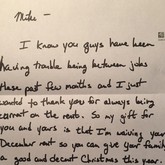 Mike —
I know you guys have been
having trouble being between jobs
these past few months and I just
wanted to thank you for always being
current on the rent. So my gift for
you and yours is that I'm waiving your
December rent so you can give your family
a good and decent Christmas this year.